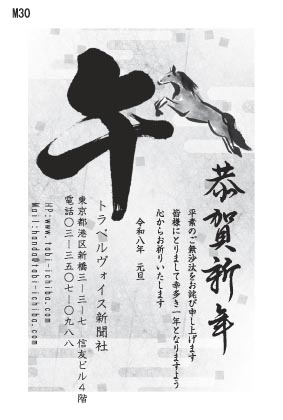 M30
午
恭賀新年
平素のご無沙汰をお詫び申し上げます
皆様にとりまして幸多き一年となりますよう
心からお祈りいたします
令和八年　元旦
トラベルヴォイス新聞社
東京都港区新橋三―三―七　信友ビル４階
電話〇三―三五〇七―〇九八八
HP:www.tabi-ichiba.com
Mail:handa@tabi-ichiba.com